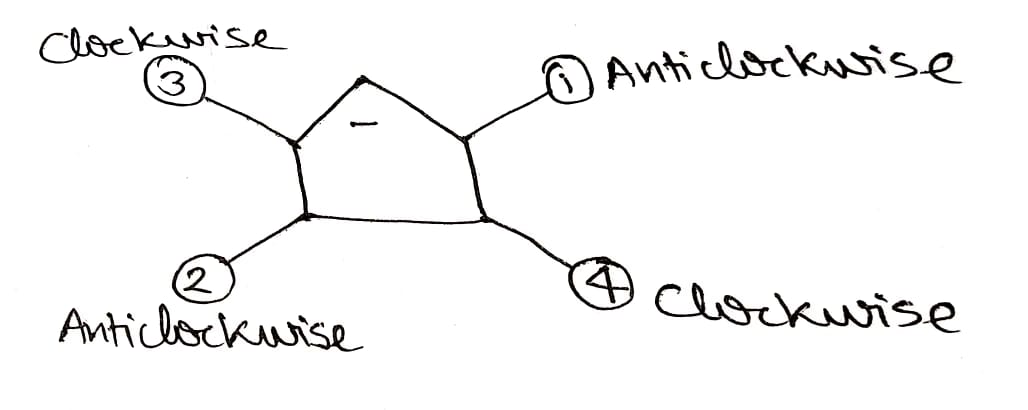 Clockwise
③
① Anticlockwise
−
②
Anticlockwise
④ Clockwise